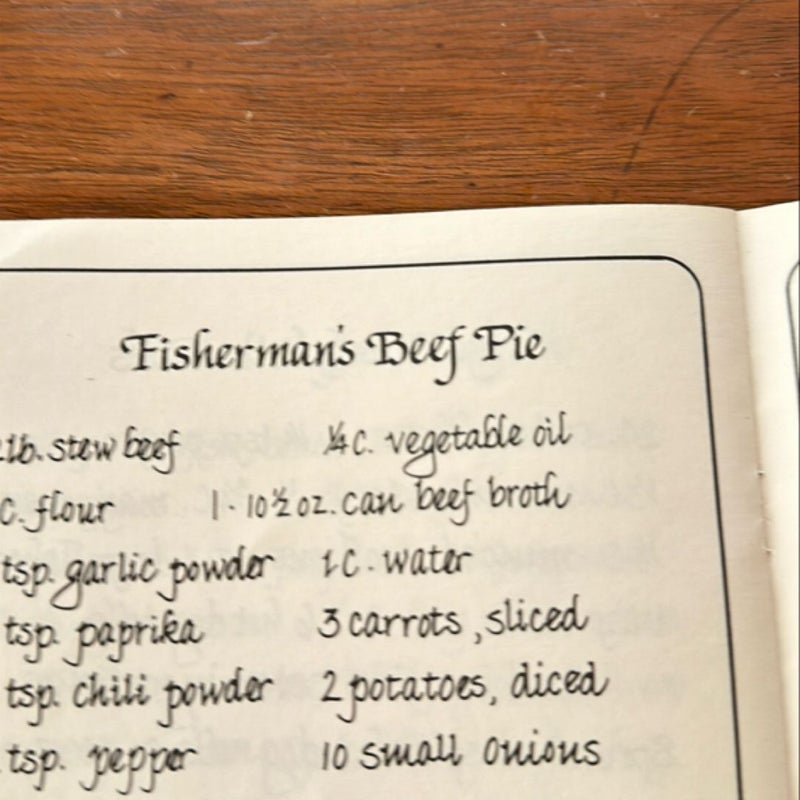 Fisherman's Beef Pie
lb. stew beef
c. flour
tsp. garlic powder
tsp. paprika
tsp. chili powder
tsp. pepper
¼ c. vegetable oil
1 - 10½ oz. can beef broth
1 c. water
3 carrots, sliced
2 potatoes, diced
10 small onions